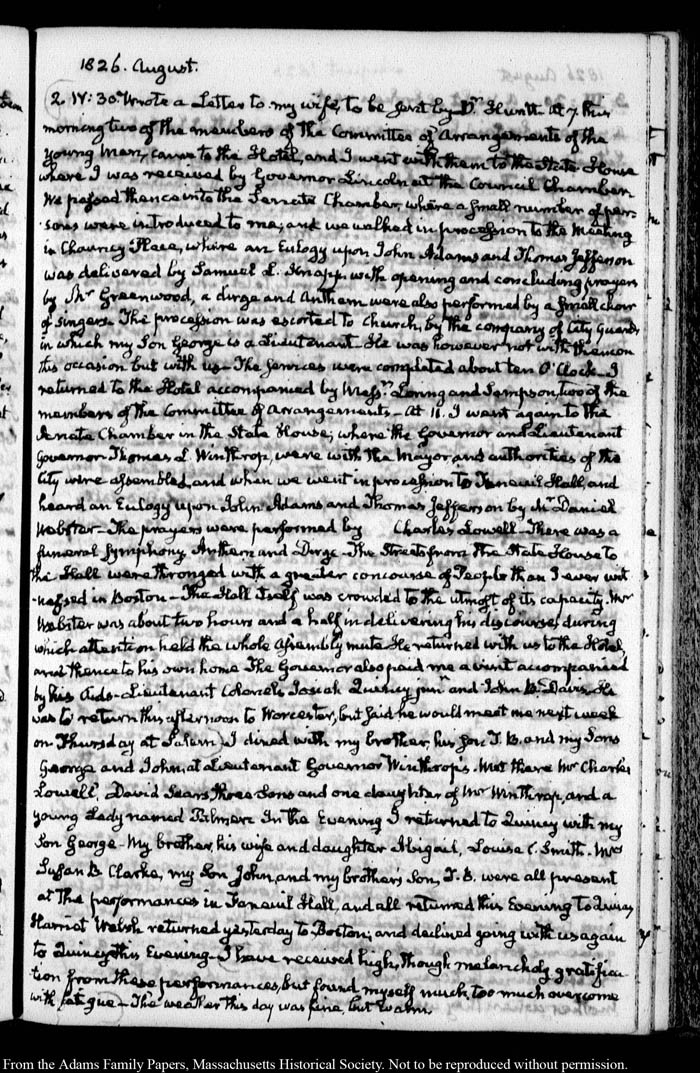 1826. August.
2. IV: 30. Wrote a Letter to my wife, to be sent by Dr Huntt. At 7. this
morning two of the members of the Committee of Arrangements of the
young Men, came to the Hotel, and I went with them to the State House
where I was received by Governor Lincoln at the Council Chamber.
We passed thence into the Senate Chamber, where a small number of per-
sons were introduced to me; and we walked in procession to the Meeting
in Chauncy Place, where an Eulogy upon John Adams and Thomas Jefferson
was delivered by Samuel L. Knapp. with opening and concluding prayers
by Mr Greenwood, a dirge and Anthem were also performed by a small choir
of singers. The procession was escorted to Church, by the company of City Guards
in which my Son George is a Lieutenant. He was however not with them on
this occasion but with us— The services were completed about ten O'Clock. I
returned to the Hotel accompanied by Messrs Loring and Sampson, two of the
members of the Committee of Arrangements— At 11. I went again to the
Senate Chamber in the State House; where the Governor and Lieutenant
Governor Thomas L. Winthrop, were with the Mayor and authorities of the
City were assembled, and when we went in procession to Faneuil Hall, and
heard an Eulogy upon John Adams and Thomas Jefferson by Mr Daniel
Webster— The prayers were performed by Charles Lowell— There was a
funeral Symphony, Anthem and Dirge— The Streets from the State House to
the Hall were thronged with a greater concourse of People than I ever wit-
nessed in Boston— The Hall itself was crowded to the utmost of its capacity. Mr
Webster was about two hours and a half in delivering his discourse, during
which attention held the whole Assembly mute. He returned with us to the Hotel,
and thence to his own home. The Governor also paid me a visit accompanied
by his Aids— Lieutenant Colonels, Josiah Quincy junr and John B. Davis. He
was to return this afternoon to Worcester, but said he would meet me next week
on Thursday at Salem. I dined with my brother, his son T. B. and my Sons
George and John, at Lieutenant Governor Winthrop's. Met there Mr Charles
Lowell, David Sears, three Sons and one daughter of Mr Winthrop, and a
young Lady named In the Evening I returned to Quincy with my
Son George— My brother, his wife and daughter Abigail, Louisa C. Smith. Mrs
Susan B. Clarke, my Son John, and my brother's Son, T. B. were all present
at the performances in Faneuil Hall, and all returned this Evening to Quincy
Harriet Welsh returned yesterday to Boston; and declined going with us again
to Quincy this Evening— I have received high, though melancholy gratifica-
tion from these performances, but found myself much, too much overcome
with fatigue— The weather this day was fine, but warm.
From the Adams Family Papers, Massachusetts Historical Society. Not to be reproduced without permission.